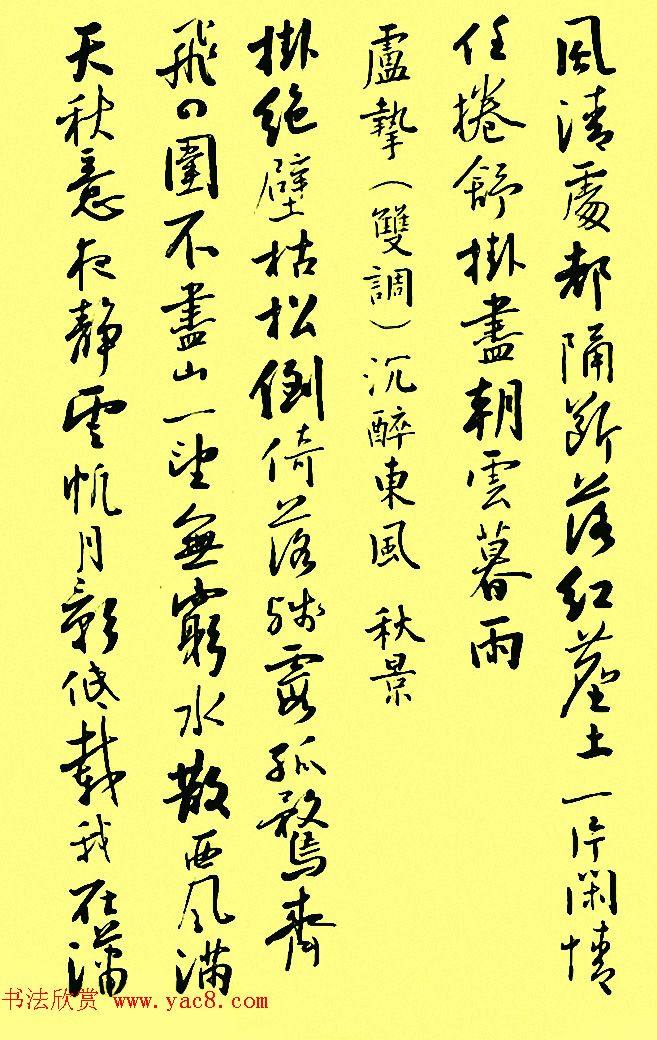 風清處都隔斷落紅塵土一片閑情
任捲舒掛盡朝雲暮雨
盧摯（雙調）沉醉東風 秋景
掛絕壁枯松倒倚落殘霞孤鶩齊
飛四圍不盡山一望無窮水散西风滿
天秋意夜靜雲帆月影低載我在瀟
书法欣赏 www.yac8.com